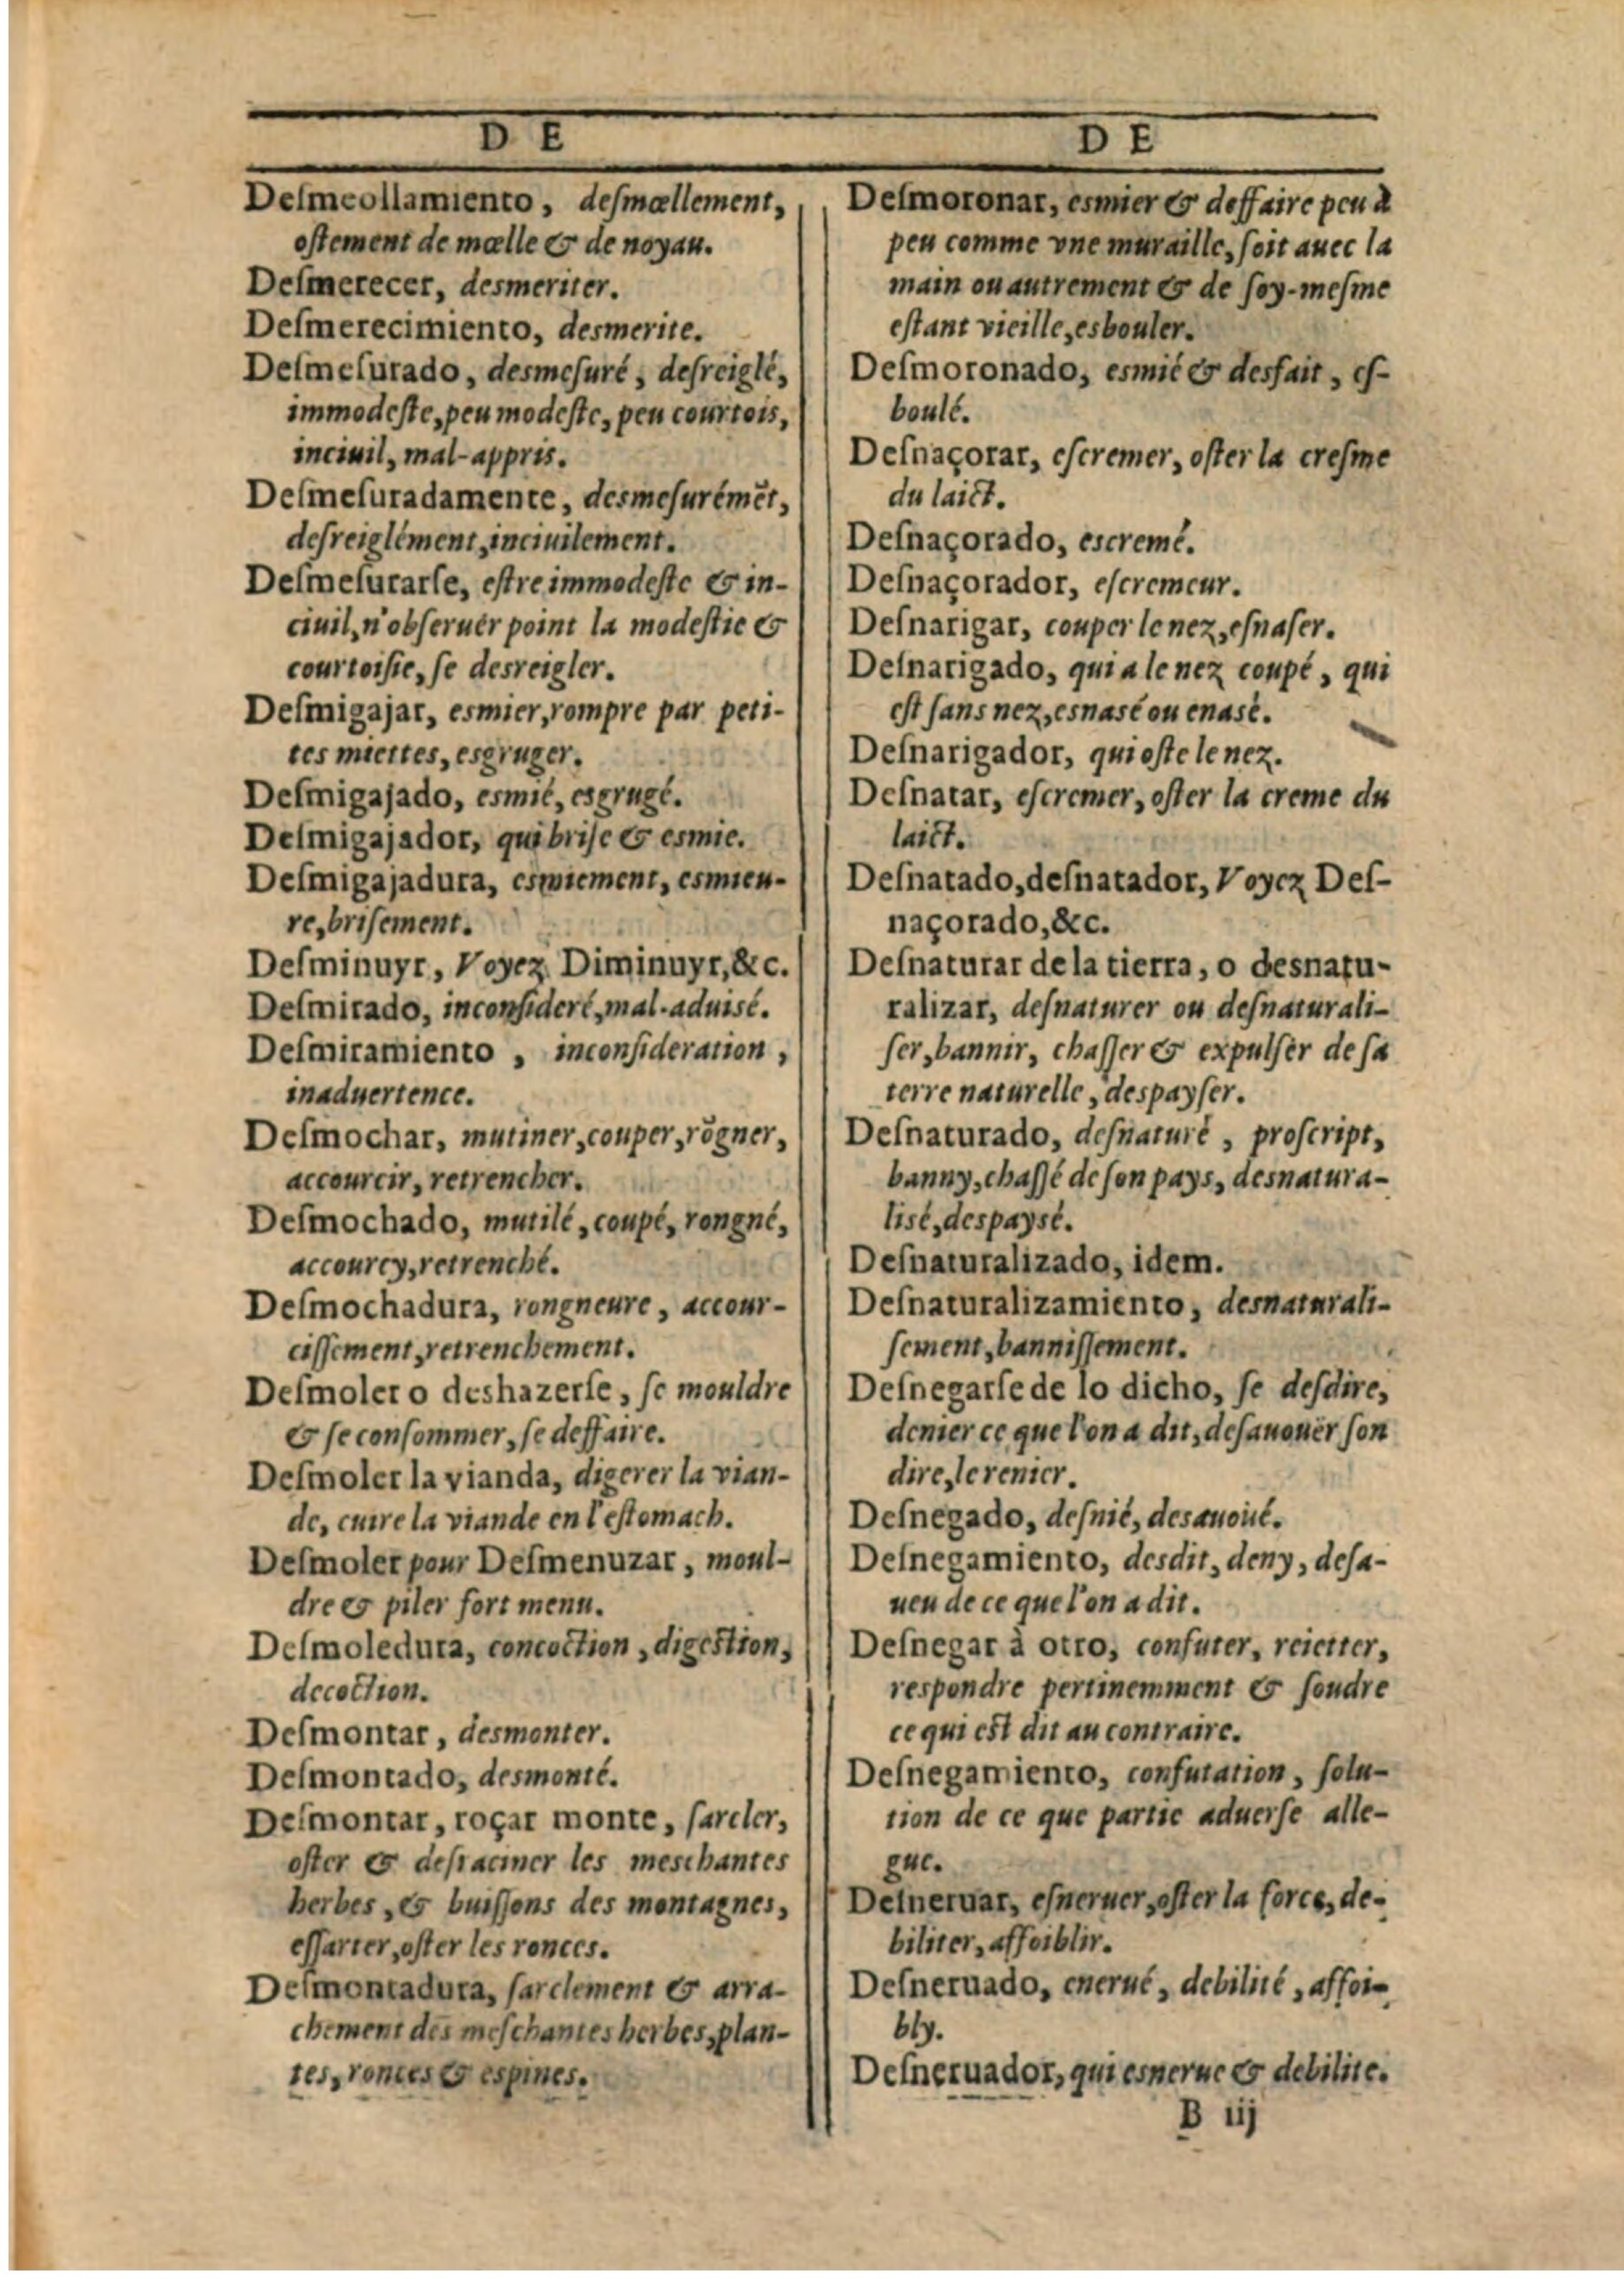 D E
Deſmeollamiento, deſmœllement,
oſtement de mœlle & de noyau.
Deſmerecer, desmeriter.
Deſmerecimiento, desmerite.
Deſmeſurado, desmeſuré, deſreiglé,
immodeſte, peu modeſte, peu courtois,
inciuil, mal-appris.
Deſmeſuradamente, desmeſurémẽt,
deſreiglément, inciuilement.
Deſmeſurarſe, eſtre immodeſte & in-
ciuil, n'obſeruer point la modeſtie &
courtoiſie, ſe desreigler.
Deſmigajar, esmier, rompre par peti-
tes miettes, esgruger.
Deſmigajado, esmié, esgrugé.
Deſmigajador, qui briſe & esmie.
Deſmigajadura, esmiement, esmieu-
re, briſement.
Deſminuyr, Voyez Diminuyr, &c.
Deſmirado, inconſideré, mal-aduisé.
Deſmiramiento, inconſideration,
inaduertence.
Deſmochar, mutiner, couper, rõgner,
accourcir, retrencher.
Deſmochado, mutilé, coupé, rongné,
accourcy, retrenché.
Deſmochadura, rongneure, accour-
ciſſement, retrenchement.
Deſmoler o deshazerſe, ſe mouldre
& ſe conſommer, ſe deffaire.
Deſmoler la vianda, digerer la vian-
de, cuire la viande en l'eſtomach.
Deſmoler pour Deſmenuzar, moul-
dre & piler fort menu.
Deſmoledura, concoction, digeſtion,
decoction.
Deſmontar, desmonter.
Deſmontado, desmonté.
Deſmontar, roçar monte, ſarcler,
oſter & deſraciner les meschantes
herbes, & buiſſons des montagnes,
eſſarter, oſter les ronces.
Deſmontadura, ſarclement & arra-
chement des meſchantes herbes, plan-
tes, ronces & espines.
D E
Deſmoronar, esmier & deffaire peu à
peu comme vne muraille, ſoit auec la
main ou autrement & de ſoy-meſme
eſtant vieille, esbouler.
Deſmoronado, esmié & desfait, eſ-
boulé.
Deſnaçorar, eſcremer, oſter la creſme
du laict.
Deſnaçorado, escremé.
Deſnaçorador, eſcremeur.
Deſnarigar, couper le nez, eſnaſer.
Deſnarigado, qui a le nez coupé, qui
eſt ſans nez, esnasé ou enasé.
Deſnarigador, qui oſte le nez.
Deſnatar, eſcremer, oſter la creme du
laict.
Deſnatado, deſnatador, Voyez Deſ-
naçorado, &c.
Deſnaturar de la tierra, o desnatu-
ralizar, deſnaturer ou deſnaturali-
ſer, bannir, chaſſer & expulſer de ſa
terre naturelle, despayſer.
Deſnaturado, deſnaturé, proſcript,
banny, chaſſé de ſon pays, desnatura-
lisé, despaysé.
Deſnaturalizado, idem.
Deſnaturalizamiento, desnaturali-
ſement, banniſſement.
Deſnegarſe de lo dicho, ſe deſdire,
denier ce que l'on a dit, deſauoüer ſon
dire, le renier.
Deſnegado, deſnié, desauoüé.
Deſnegamiento, desdit, deny, deſa-
ueu de ce que l'on a dit.
Deſnegar à otro, confuter, reietter,
respondre pertinemment & ſoudre
ce qui eſt dit au contraire.
Deſnegamiento, confutation, ſolu-
tion de ce que partie aduerſe alle-
gue.
Deſneruar, eſneruer, oſter la force, de-
biliter, affoiblir.
Deſneruado, enerué, debilité, affoi-
bly.
Deſneruador, qui esnerue & debilite.
B iij